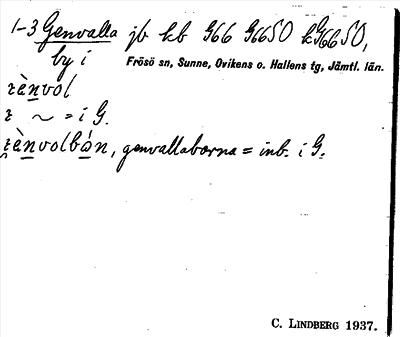 1-3 Genvalla jb kb G66 G6650 kG6650,
by i Frösö sn, Sunne, Ovikens o. Hallens tg, Jämtl. län.
rènvol
r ~ = i G.
rènvolbán, genvallaborna = inb. i G.
C. LINDBERG 1937.